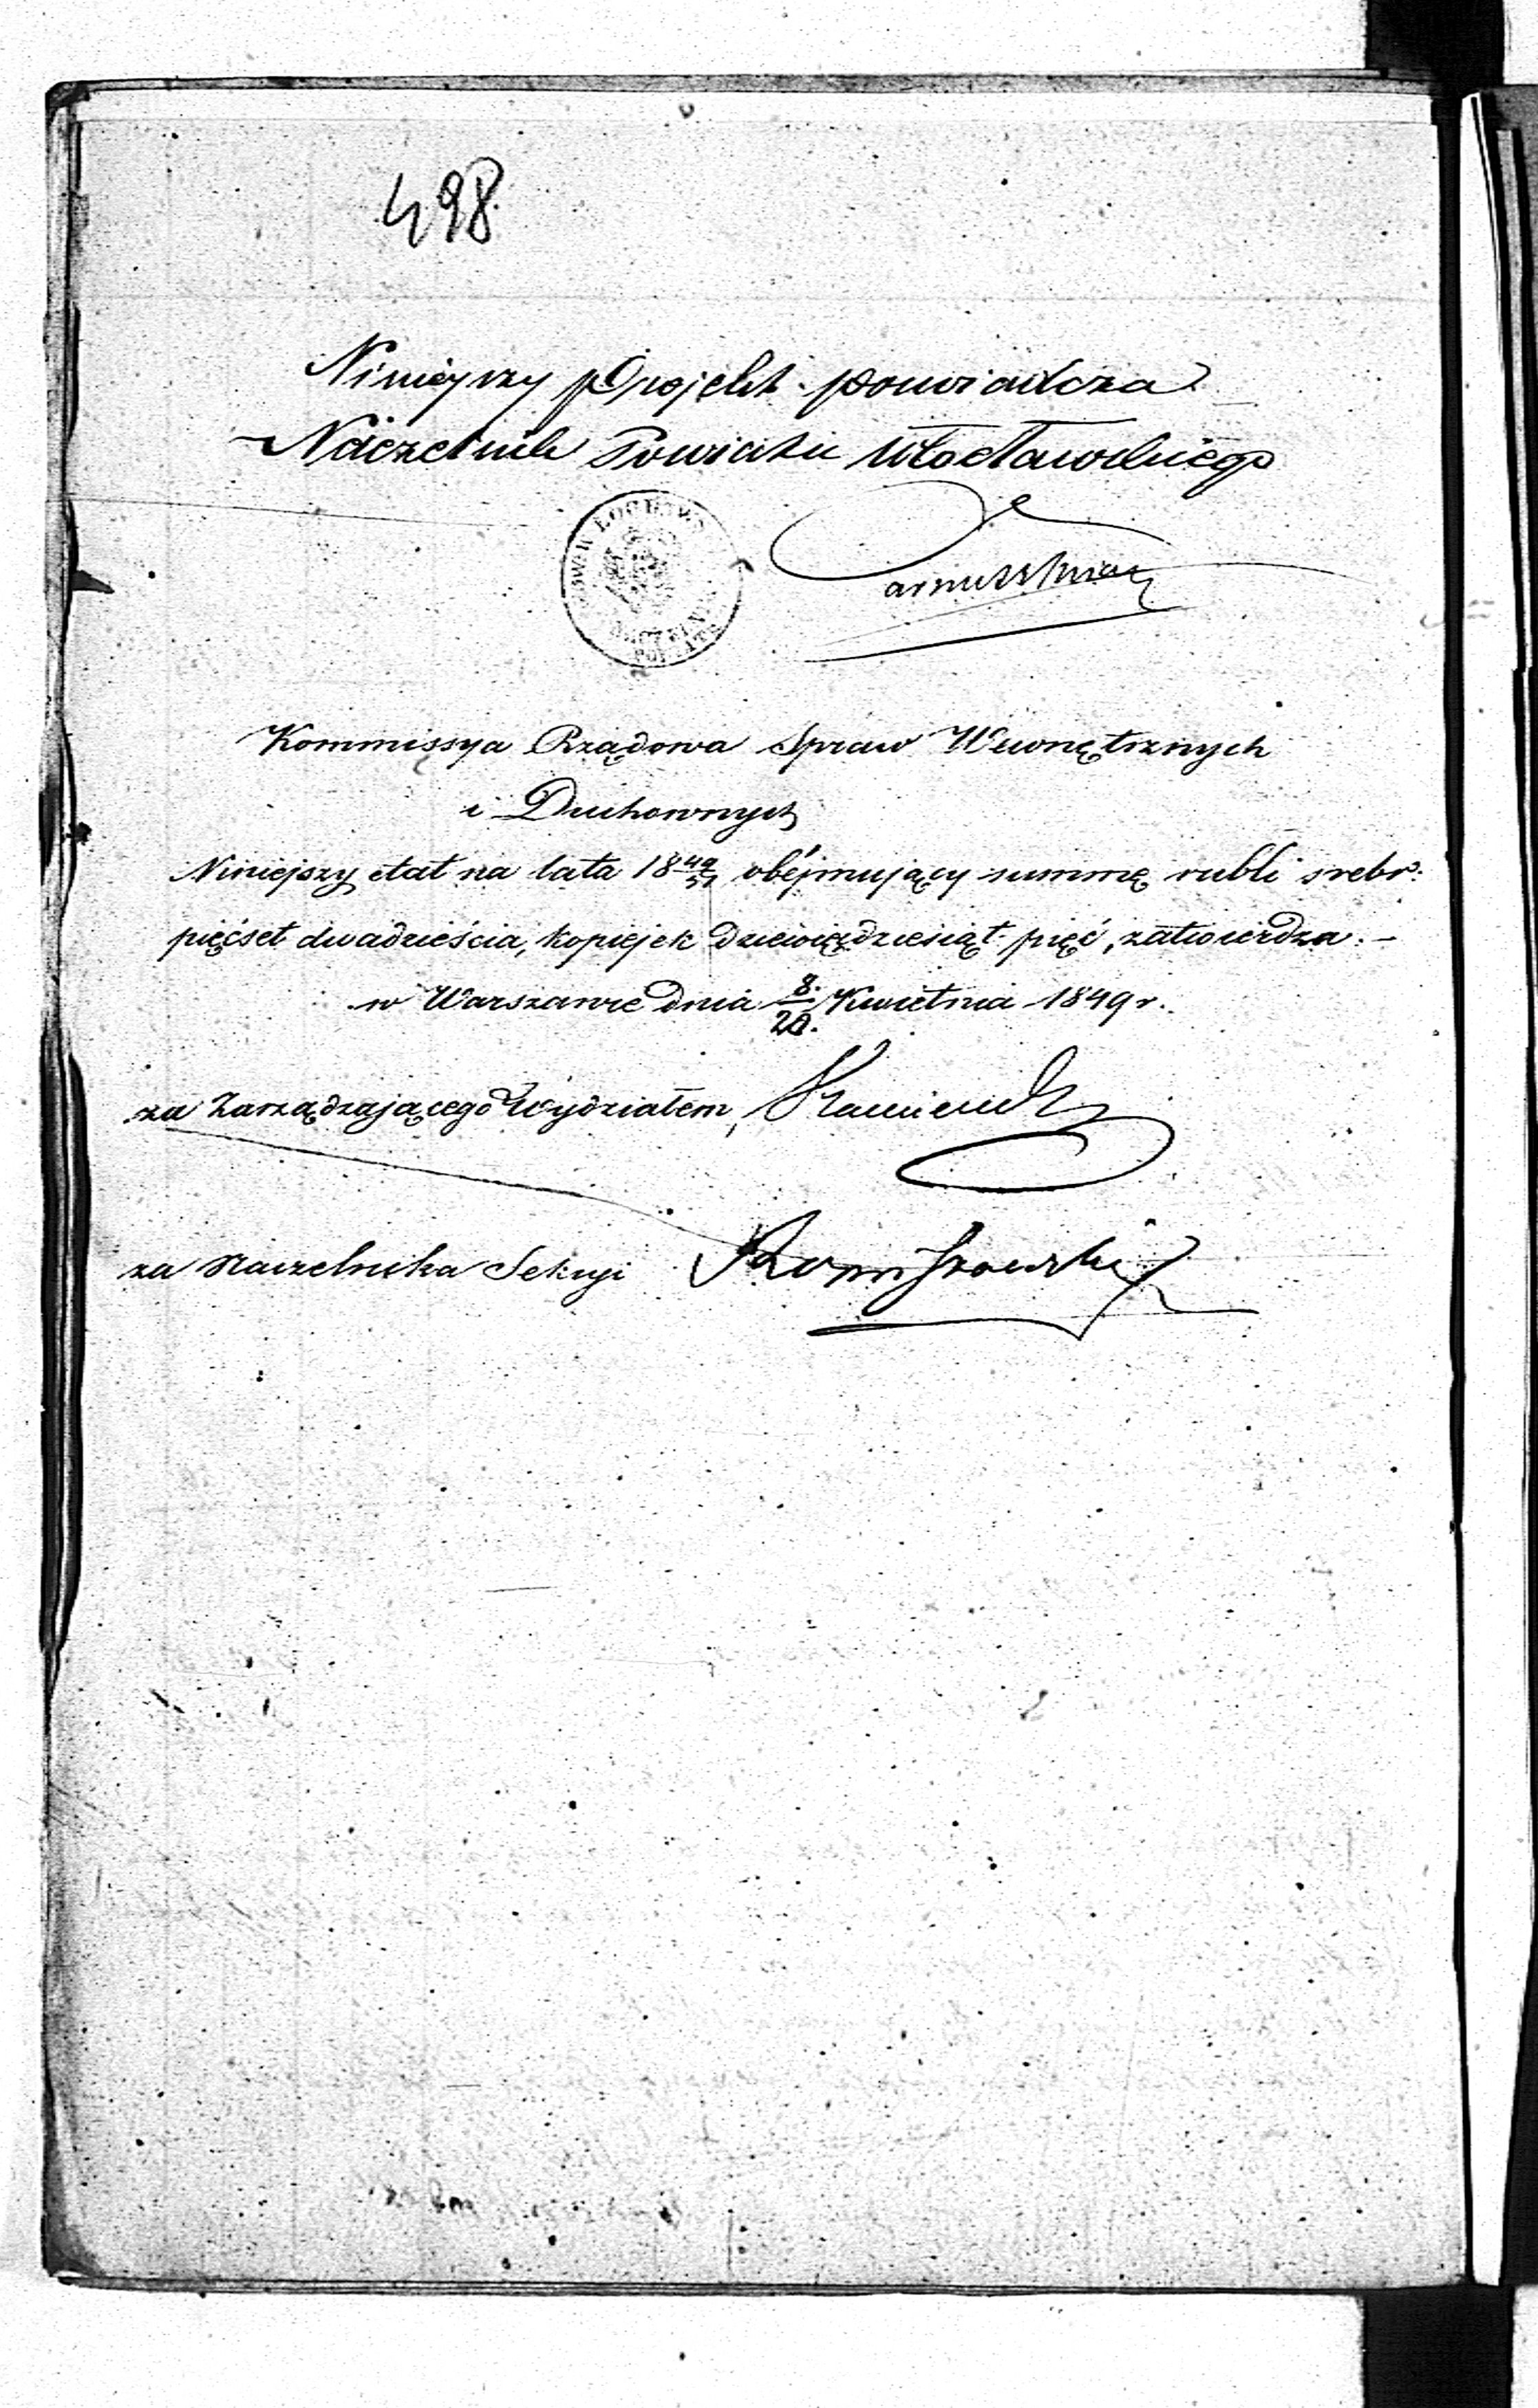 498.
Niniejszy Projekt poswiadcza
Naczelnik Powiatu Włocławskiego
Kommissya Rządowa Spraw Wewnętrznych
i Duchownych
Niniejszy etat na lata 18 49/51 obéjmujący summę rubli srebr:
pięćset dwadzieścia, kopiejek dziewięćdziesiąt pięć, zatwierdza. –
w Warszawie dnia 8./20. Kwietnia 1849 r.
za Zarządzającego Wydziałem,
za Naczelnika Sekcyi